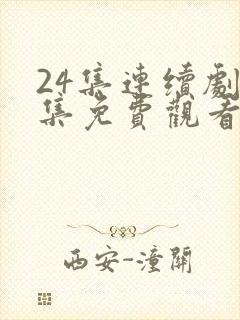 24集連續劇
集免費觀看
西安-潼關